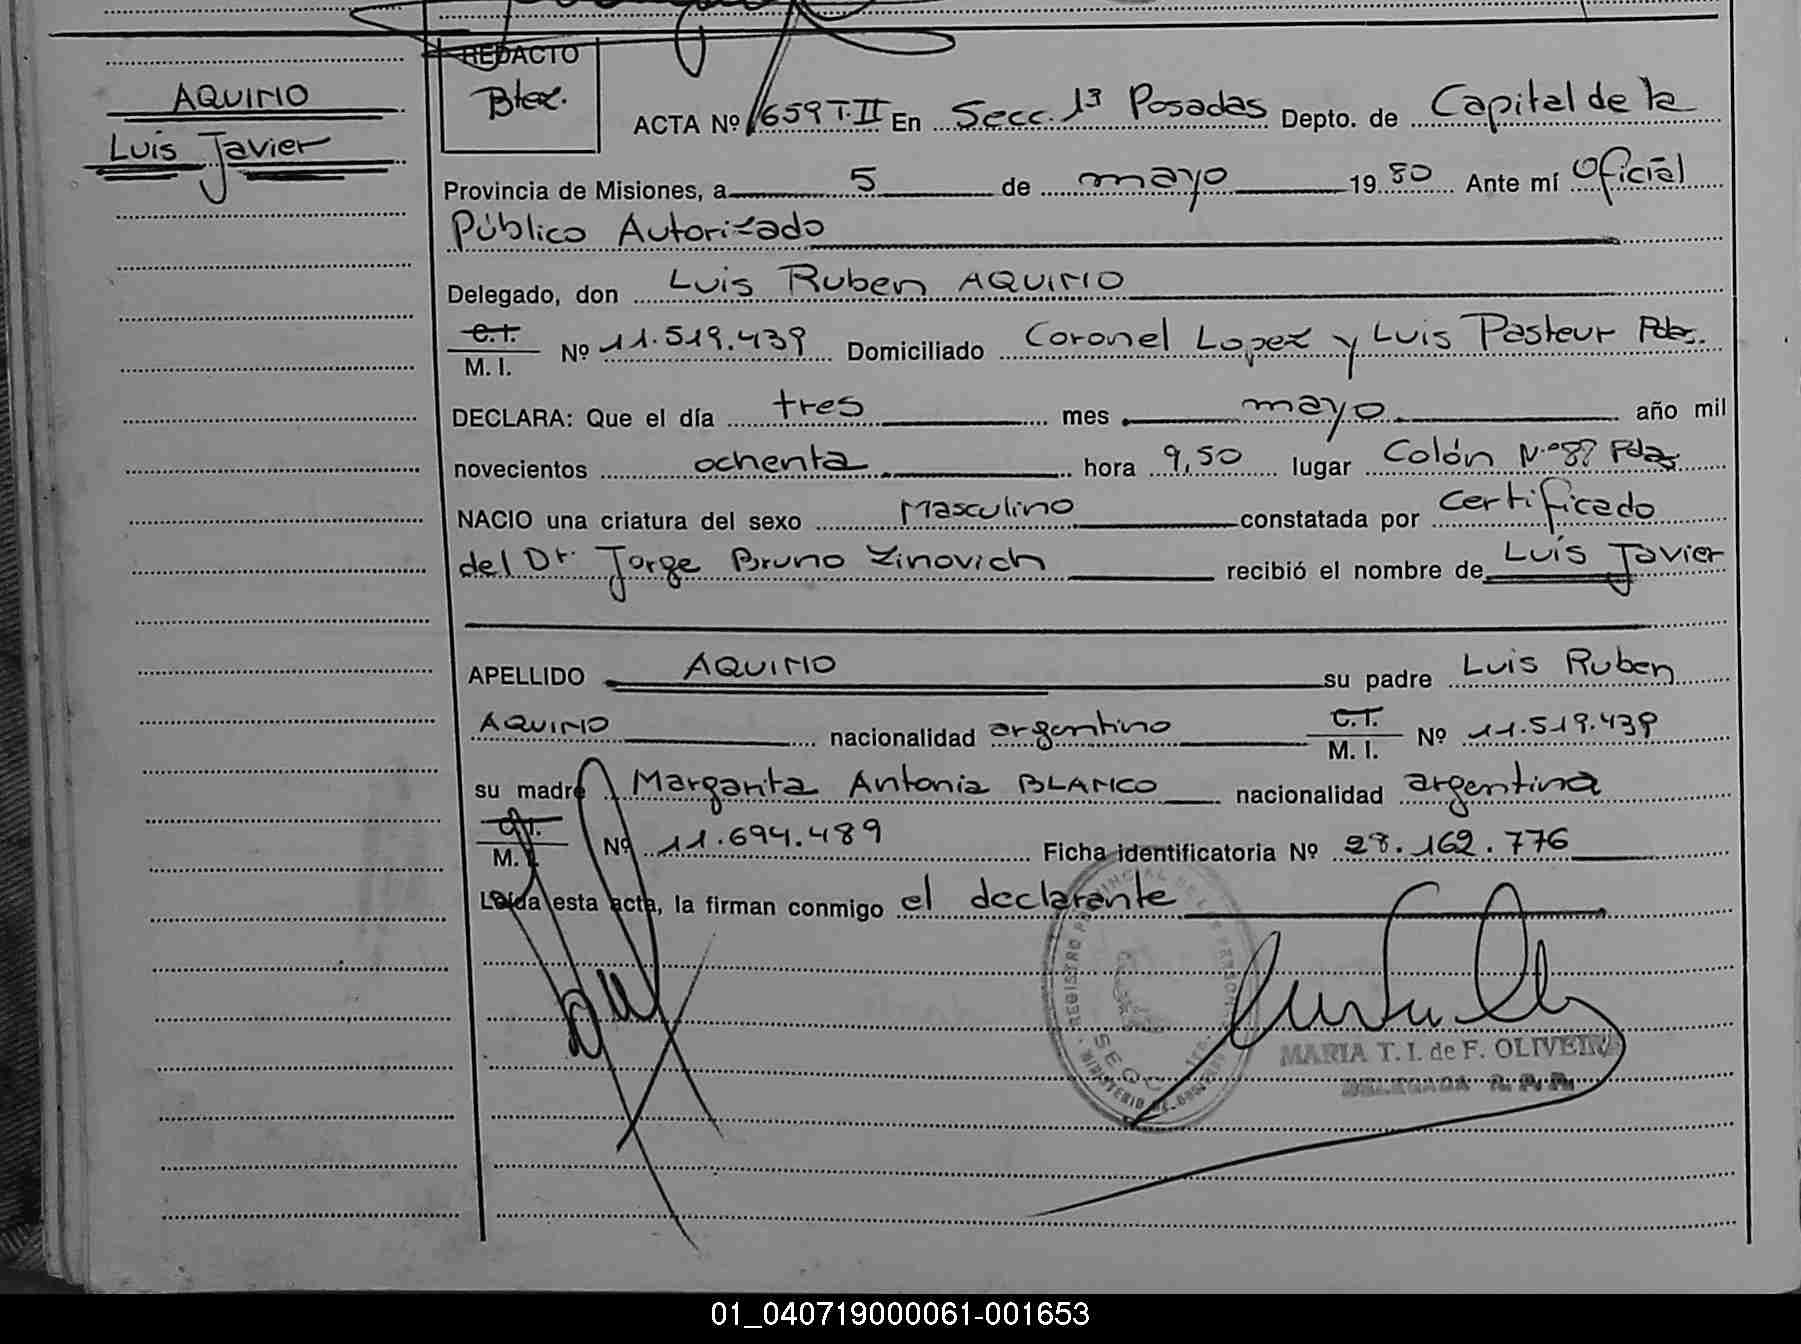 AQUINO
Luis Javier
REDACTO
Btez.
ACTA Nº 1659 T.II En Secc. 1ª Posadas Depto. de Capital de la
Provincia de Misiones, a 5 de mayo 1980 Ante mí Oficial
Público Autorizado
Delegado, don Luis Ruben AQUINO
C.I.
M. I. Nº 11.519.439 Domiciliado Coronel Lopez y Luis Pasteur Pdas.
DECLARA: Que el día tres mes mayo año mil
novecientos ochenta hora 9,50 lugar Colón Nº Pdas
NACIO una criatura del sexo Masculino constatada por certificado
del Dr. Jorge Bruno Zinovich recibió el nombre de Luis Javier
APELLIDO AQUINO su padre Luis Ruben
AQUINO nacionalidad argentino C.I.
M. I. Nº 11.519.439
su madre Margarita Antonia BLANCO nacionalidad argentina
C.I.
M. I. Nº 11.694.489 Ficha identificatoria Nº 28.162.776
Leída esta acta, la firman conmigo el declarante
MARIA T. I. de F. OLIVEIRA
DELEGADA R. P. P.
01_040719000061-001653